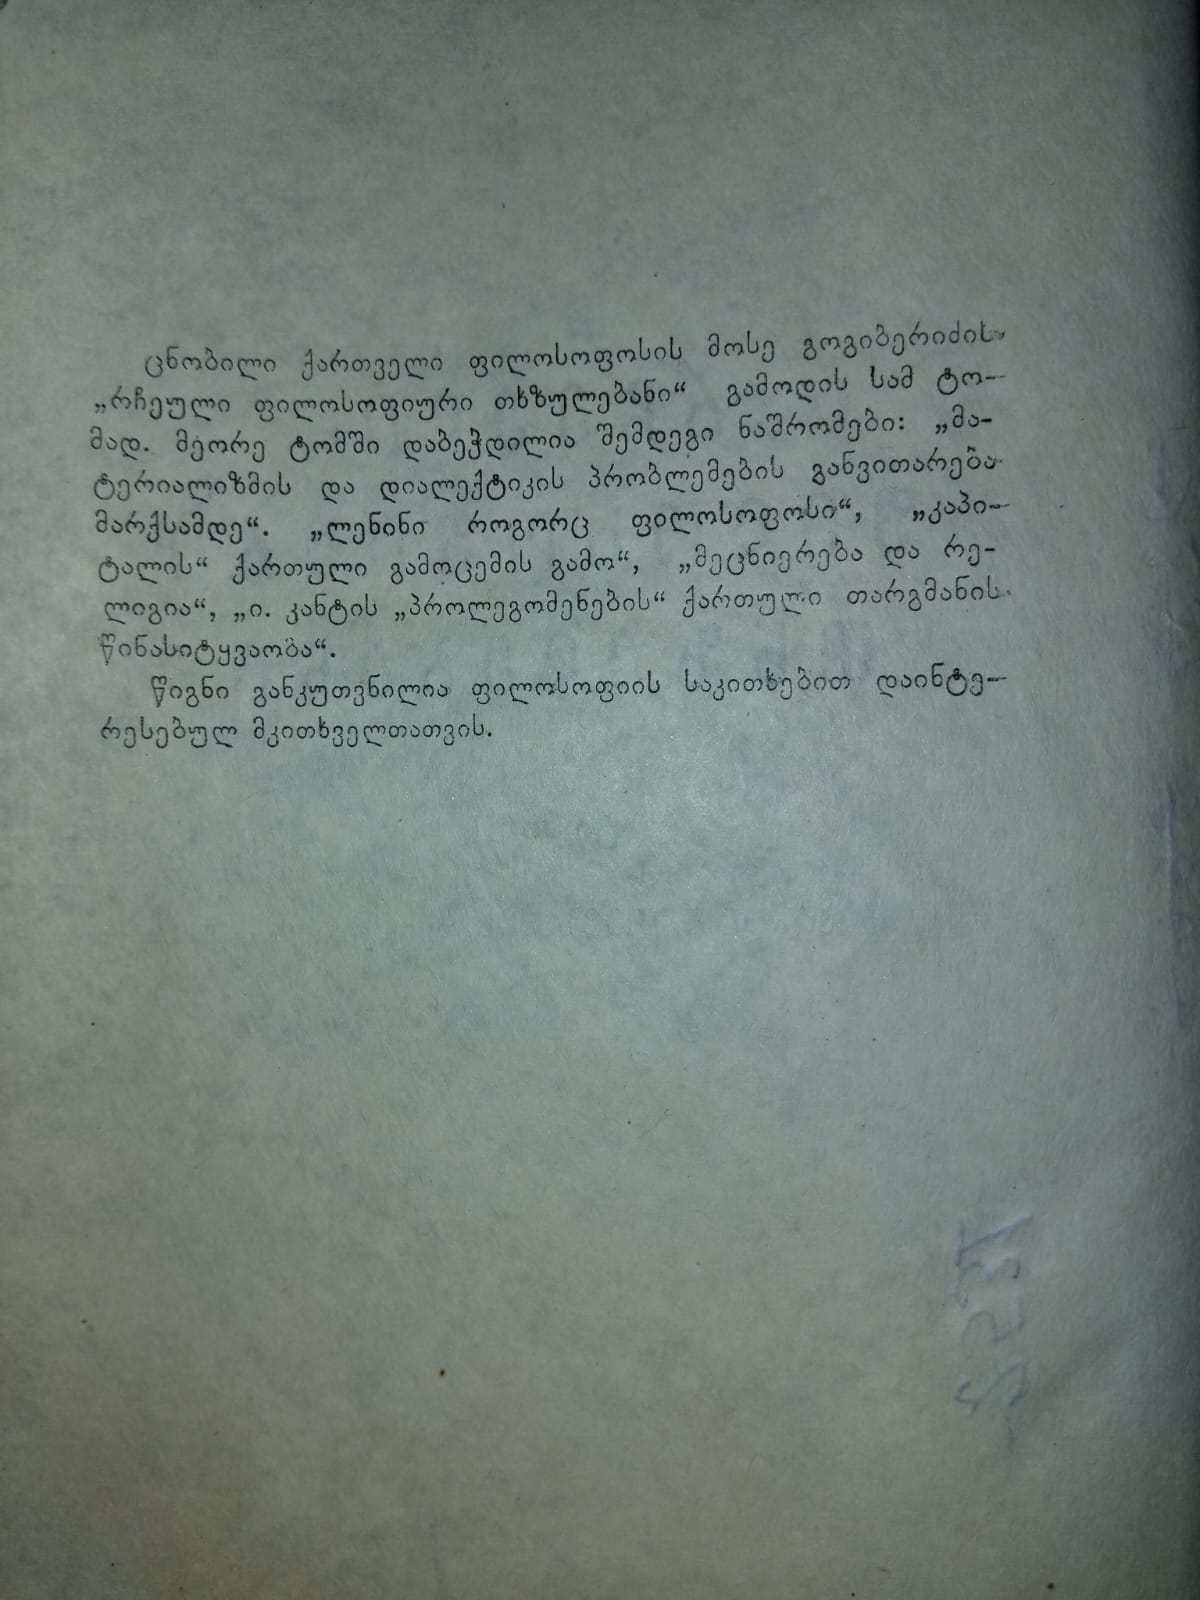 ცნობილი ქართველი ფილოსოფოსის მოსე გოგიბერიძის
„რჩეული ფილოსოფიური თხზულებანი“ გამოდის სამ ტო-
მად. მეორე ტომში დაბეჭდილია შემდეგი ნაშრომები: „მა-
ტერიალიზმის და დიალექტიკის პრობლემების განვითარება
მარქსამდე“. „ლენინი როგორც ფილოსოფოსი“, „კაპი-
ტალის“ ქართული გამოცემის გამო“, „მეცნიერება და რე-
ლიგია“, „ი. კანტის „პროლეგომენების“ ქართული თარგმანის
წინასიტყვაობა“.
წიგნი განკუთვნილია ფილოსოფიის საკითხებით დაინტე-
რესებულ მკითხველთათვის.